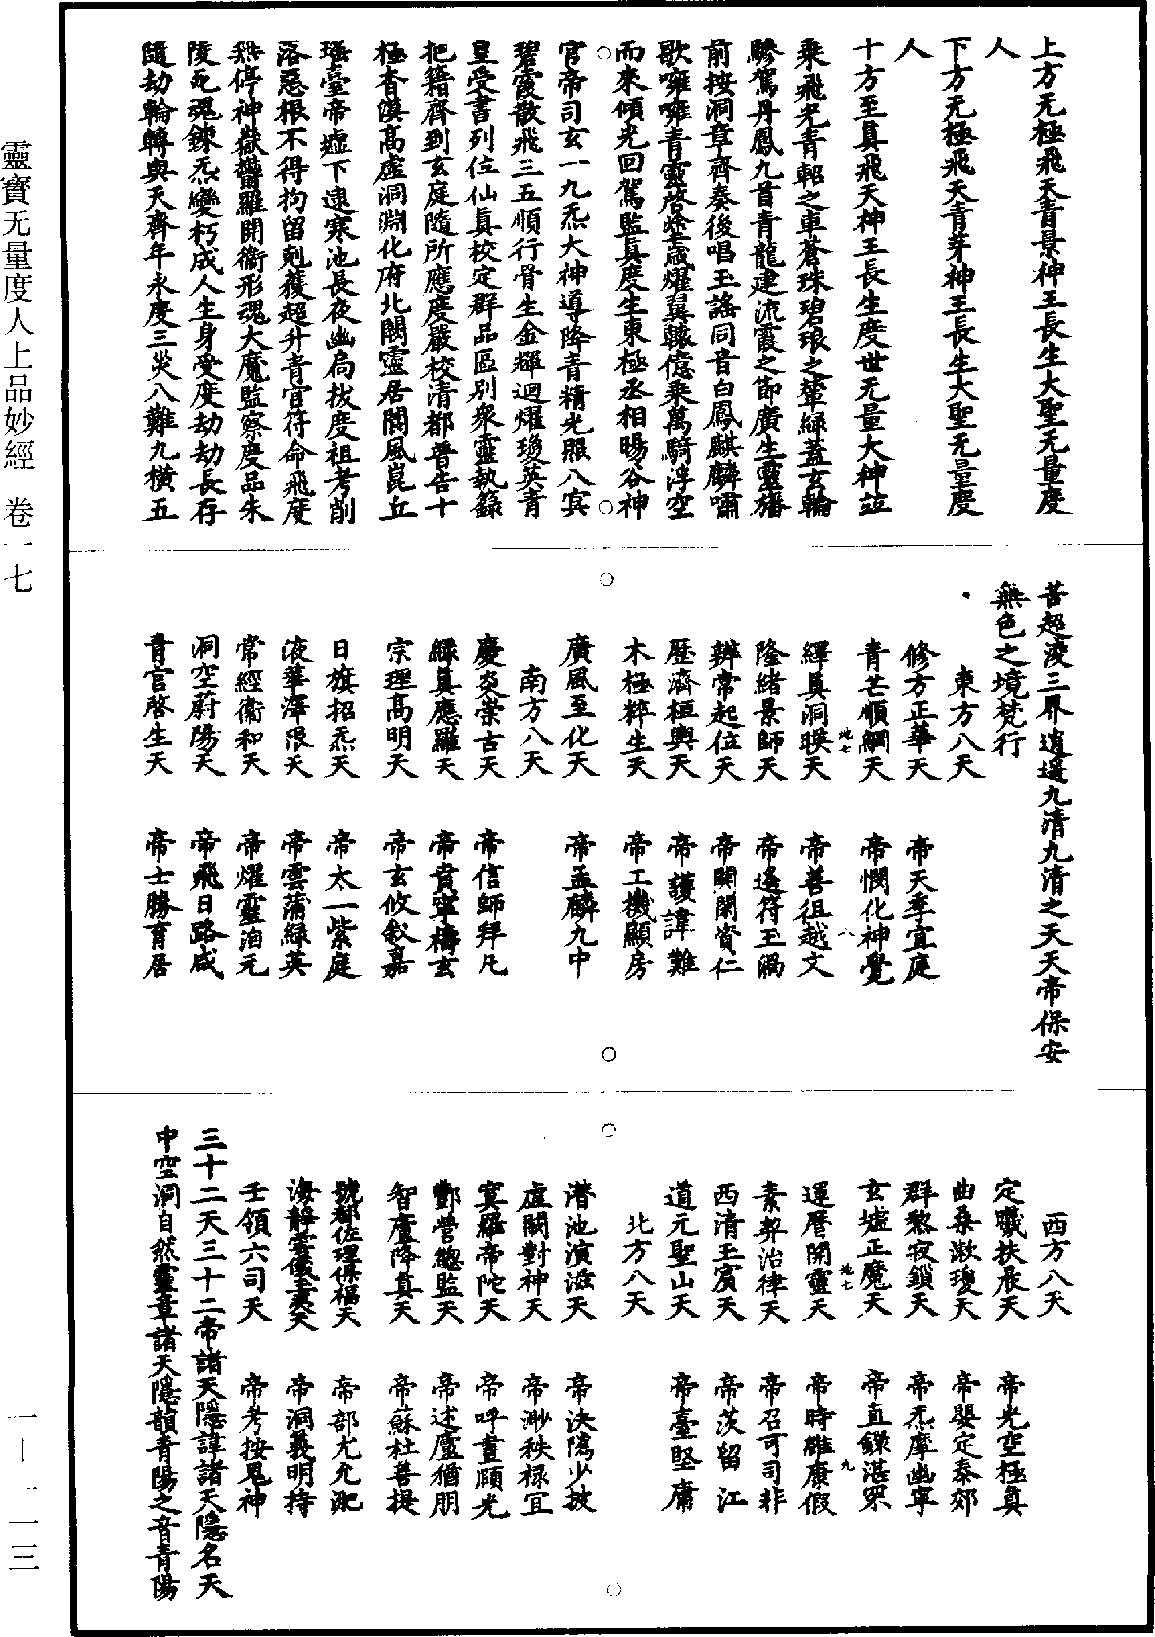 上方无極飛天青景神王長生大聖无量度
人
下方无極飛天青芽神王長生大聖无量度
人
十方至真飛天神王長生度世无量大神並
乘飛光青軺之車蒼珠碧琅之輦綠蓋玄輪
驂駕丹鳳九首青龍建流霞之節廣生靈旛
前按洞章齊奏後唱玉謠同音白鳳麒麟嘯
歌嗈嗈青靈啓塗歲耀翼轅億乘萬騎浮空
而來傾光回駕監真度生東極丞相暘谷神
官帝司玄一九炁大神導降青精光照八冥
碧霞散飛三五順行骨生金輝迴耀瓊英青
皇受書列位仙真校定群品區別衆靈執錄
把籍齊到玄庭隨所應度嚴校清都普告十
極杳漠高虛洞淵化府北闕靈居閬風崑丘
瑤臺帝墟下逮寒池長夜幽扃拔度祖考削
落惡根不得拘留剋獲超升青官符命飛度
無停神嶽鬱羅開衛形魂大魔監察度品朱
陵死魂鍊炁變朽成人生身受度劫劫長存
隨劫輪轉與天齊年永度三災八難九橫五
苦超淩三界逍遙九清九清之天天帝保安
無色之境梵行
東方八天
修方正華天 帝天季宜庭
青芒順綱天 帝憫化神覺
繹真洞暎天 帝善徂越文
隆緒景師天 帝逢符王渦
辨常起位天 帝開閑賞仁
歷濟桓輿天 帝護諱難
木極粹生天 帝工機顯房
廣風至化天 帝孟麟九中
南方八天
慶炎榮古天 帝信師拜凡
綠真應羅天 帝賁寧檮玄
宗理高明天 帝玄攸叙嘉
日旗招炁天 帝太一紫庭
液華澤隈天 帝雲蒲綠英
常經衛和天 帝耀靈洎元
洞空蔚陽天 帝飛日路咸
青官啓生天 帝士勝育居
西方八天
定職扶晨天 帝光空極負
曲桑漱瓊天 帝嬰定泰郊
群黎寂鎖天 帝炁摩幽寧
玄墟正魔天 帝直錄湛罘
運曆開靈天 帝時雕康假
素契治律天 帝召可司非
西清王賓天 帝茨留江
道元聖山天 帝臺堅庸
北方八天
潛池濱滋天 帝決隲少披
虛闕對神天 帝渺秩祿宜
寞羅帝陀天 帝呼晝頤光
鄷營總監天 帝述廬猶朋
智廬降真天 帝蘇杜菩提
號都佐理俱福天 帝部尤允泓
海靜雲儀王真天 帝洞義明持
壬領六司天 帝考按鬼神
三十二天三十二帝諸天隱諱諸天隱名天
中空洞自然靈章諸天隱韻青陽之音青陽
靈寶无量度人上品妙經 卷一七
一—一一三